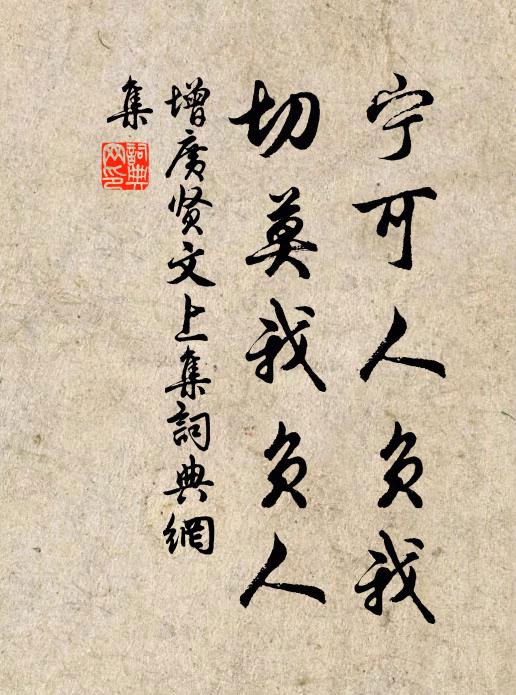 宁可人负我
切莫我负人
增广贤文上集詞典網
集
詞典
网印